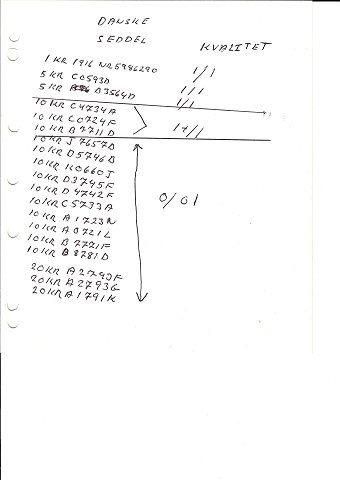 DANSKE
SEDDEL KVALITET
1 KR 1916 NR 5986290 1/1
5 KR C0593D 1/1
5 KR B3564D 1/1
10 KR C4734A
10 KR C0724F 1+/1
10 KR B7711D
10 KR J7657D
10 KR D5746B
10 KR K0660J
10 KR D3745F
10 KR D4742F 0/01
10 KR C5733A
10 KR A1723N
10 KR A8721L
10 KR B7721F
10 KR B8781D
20 KR A2793F
20 KR A2793G
20 KR A1791K